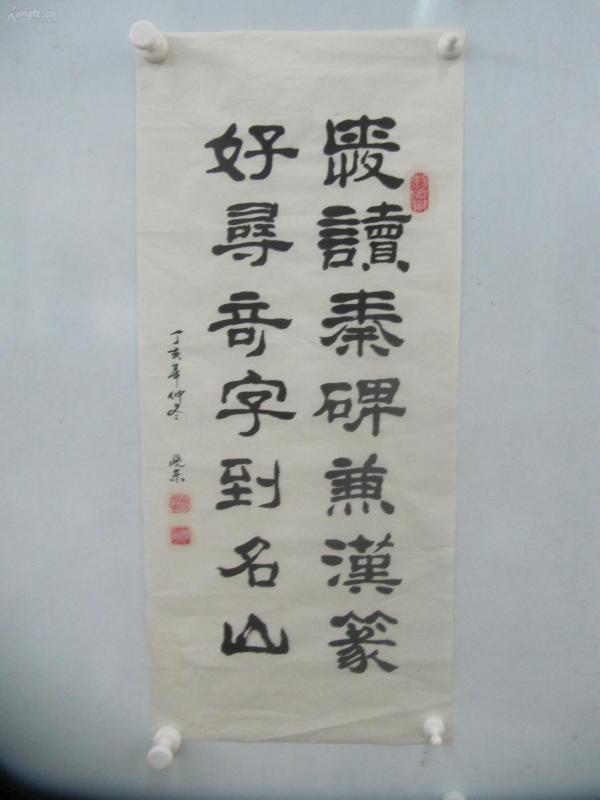 愛讀秦碑兼漢篆
好尋奇字到名山
丁亥年仲冬
Kongfz.cn